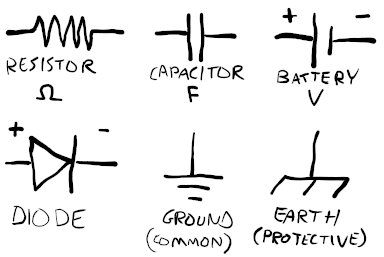 RESISTOR
Ω
CAPACITOR
F
+ -
BATTERY
V
+ -
DIODE
GROUND
(COMMON)
EARTH
(PROTECTIVE)